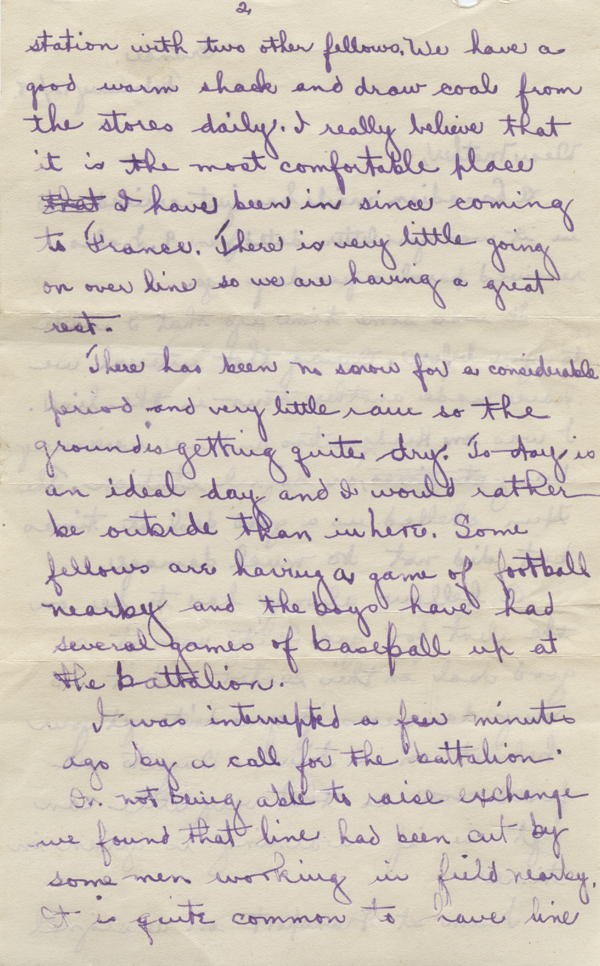 2,
station with two other fellows. We have a
good warm shack and draw coal from
the stores daily. I really believe that
it is the most comfortable place
that I have been in since coming
to France. There is very little going
on over line so we are having a great
rest.
There has been no snow for a considerable
period and very little rain so the
ground is getting quite dry. To-day is
an ideal day and I would rather
be outside than in here. Some
fellows are having a game of football
nearby and the boys have had
several games of baseball up at
the battalion.
I was interrupted a few minutes
ago by a call for the battalion.
On not being able to raise exchange
we found that line had been cut by
some men working in field nearby.
It is quite common to have line